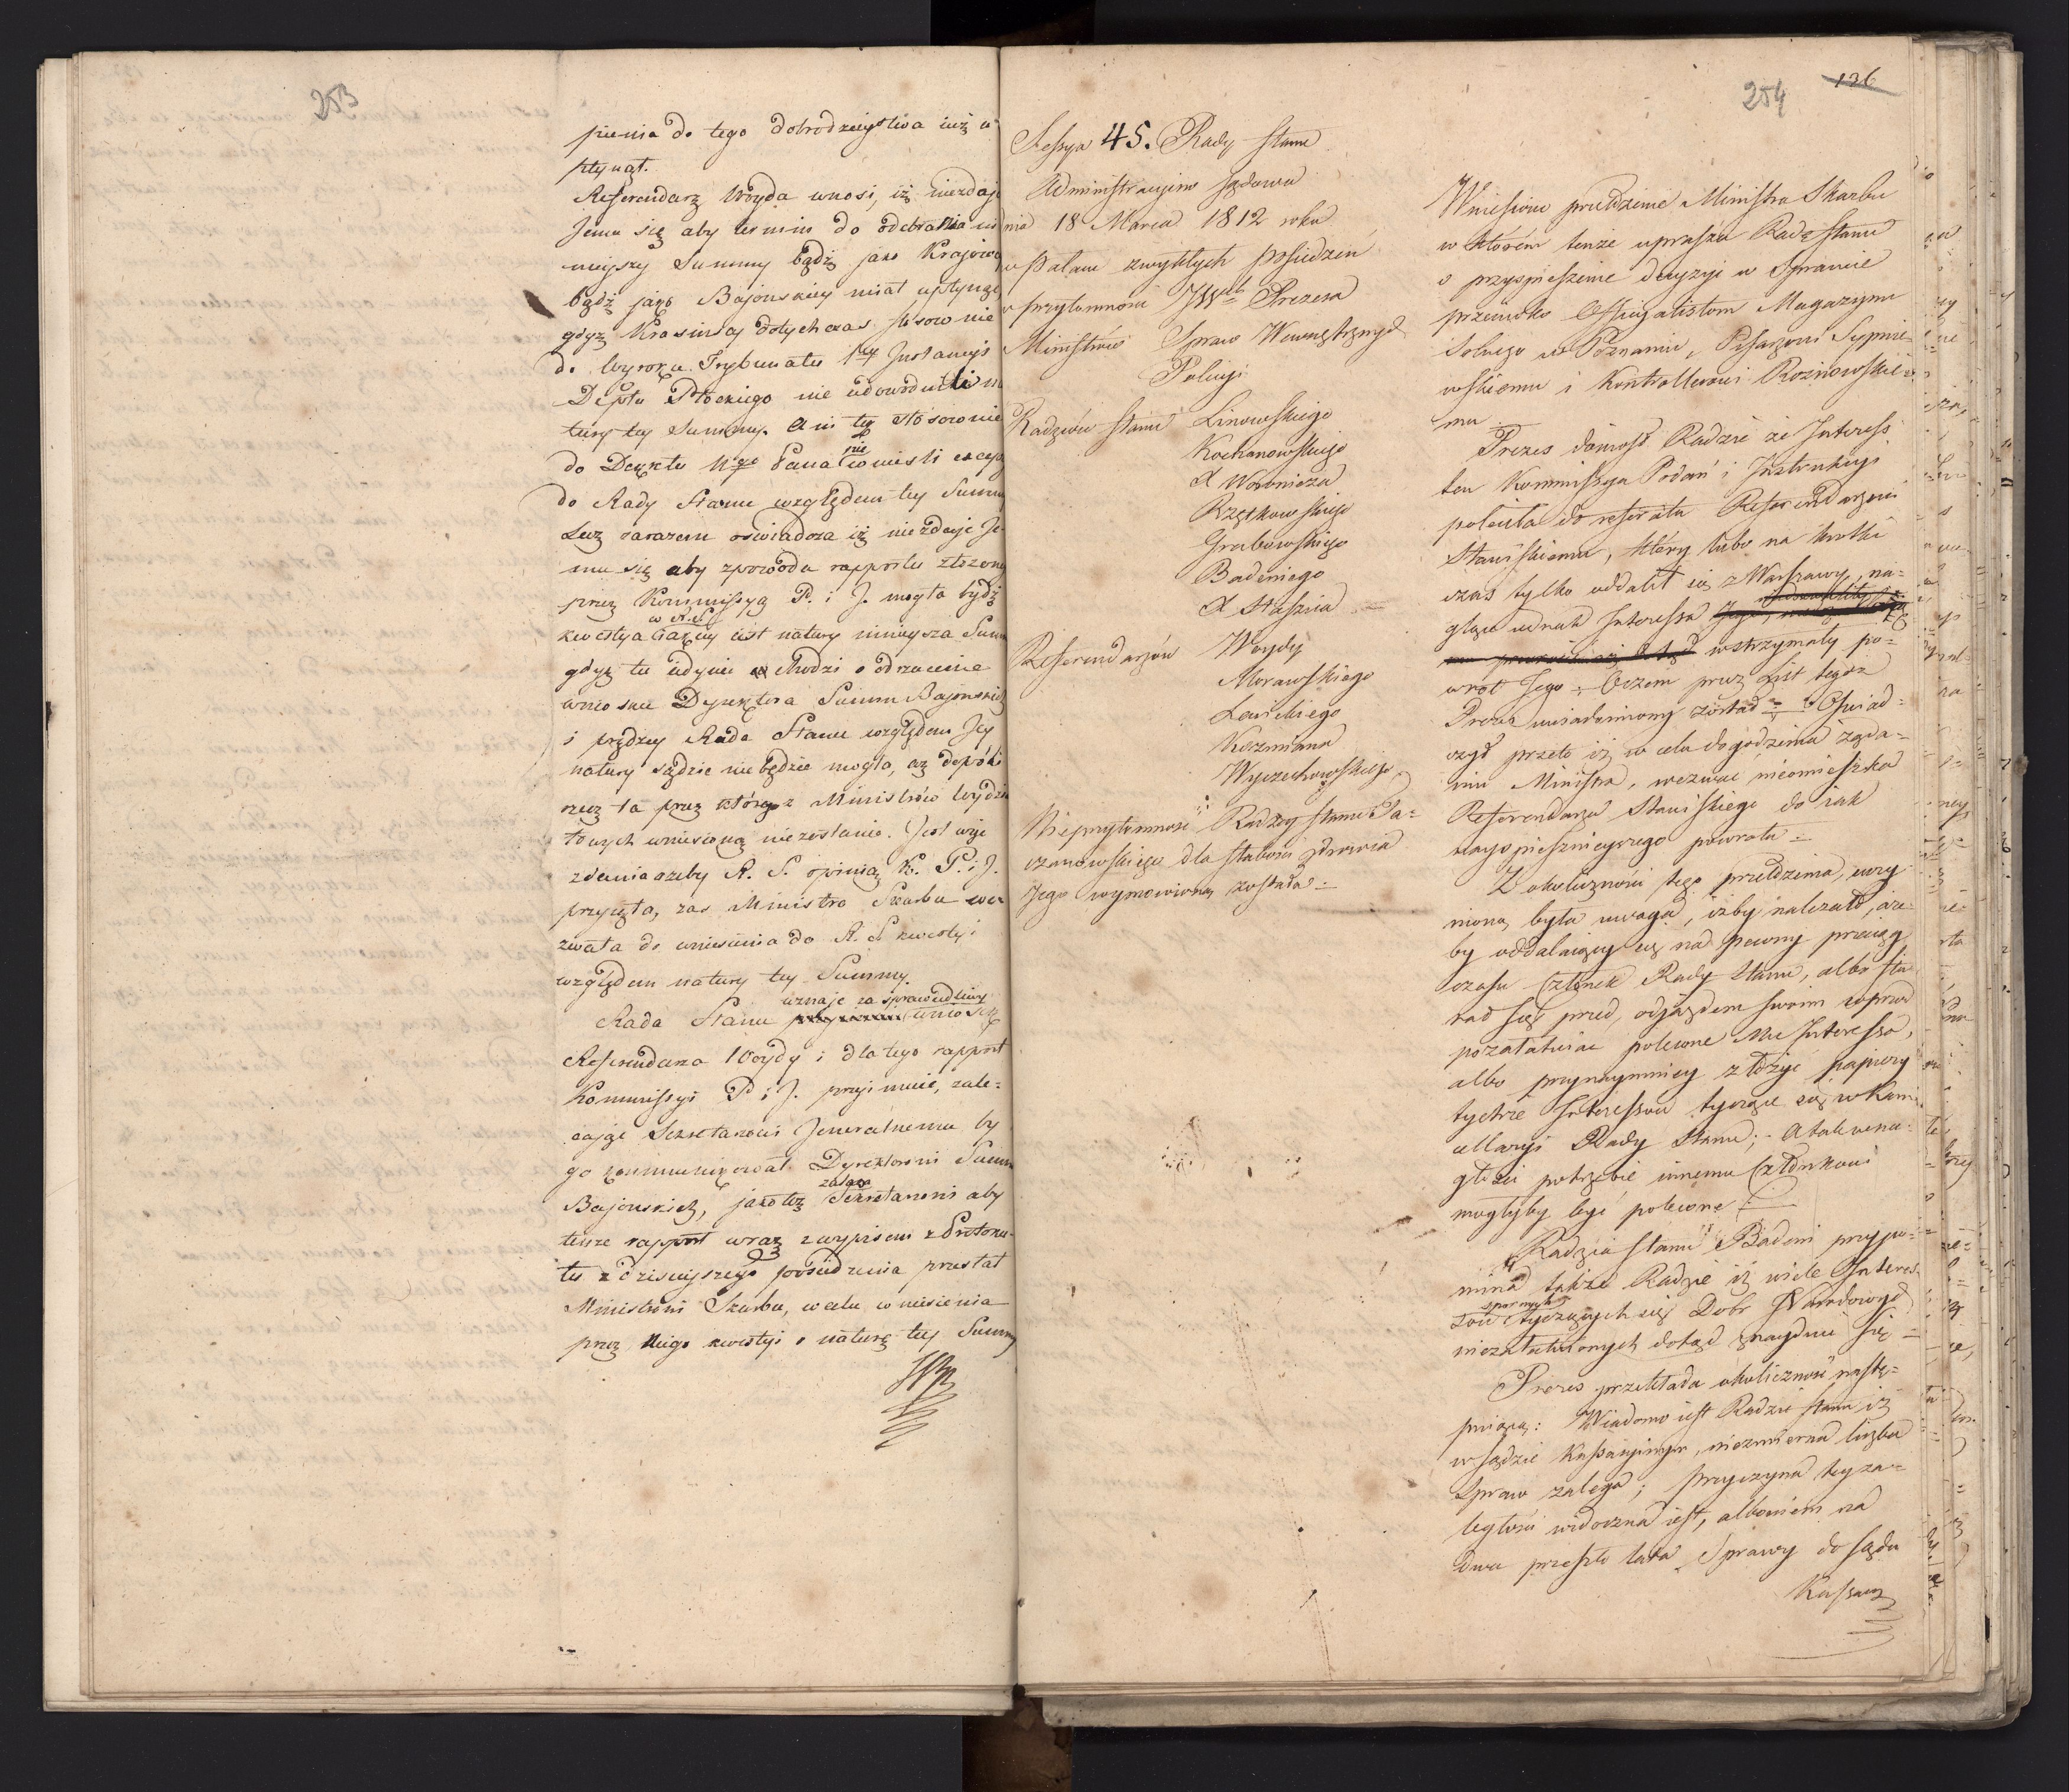 253
pienia do tego dobrodzieystwa iuż u
płynął.
Referendarz Woyda wnosi, iż niezdaje
Jemu się aby termin do odebrania ni
nieyszy Summy bądź jako Krajowey
bądź jako Bajońskiey miał upłynąć
gdyż Krasińscy dotychczas stosownie
do Wyroku Trybunału 1ey Instancyi
Deptu Płockiego nie udowodnili na
tury tey Summy. Ani też stosownie
do Dekretu Ngo Pana nie wnieśli
do Rady Stanu względem tey Summy
Lecz zarazem oświadcza iż niezdaje Je-
mu się aby zpowodu rapportu złożone
przez Kommissyą P. i J. mogła bydź
w R. S.
kwestya jakiey iest natury ninieysza Sum
gdyż tu idynie chodzi o odrzucenie
wniosku Dyrektora Summ Bajońskich
i prędzey Rada Stanu względem Jey
natury sądzić nie będzie mogła, aż dopóki
rzecz ta przez którego z Ministrów Wydzia
łowych wniesioną niezostanie. Jest więc
zdania ażeby R. S. opinią K. P. i J.
przyjęła, zaś Ministra Skarbu we
zwała do wniesienia do R. S. kwestyi
względem natury tey Summy.
uznaje za sprawiedliwy
Rada Stanu wniosek
Referendarza Woydy i dla tego rapport
Kommissyi P. i J. przyimuie, zale-
cając Sekretarzowi Jeneralnemu by
go kommunikował Dyrektorowi Summ
Bajońskich, jako też Sekretarzowi aby
tenże rapport wraz z wypisem z Protoku-
łu z dzisieyszego posiedzenia przesłał
Ministrowi Skarbu, w celu wniesienia
przez Niego kwestyi o naturę tey Summy
254
136
Sessya 45. Rady Stanu
Administracyino sądowa
dnia 18 Marca 1812 roku
w Pałacu zwykłych posiedzeń
w przytomności JWgo Prezesa
Ministrów Spraw Wewnętrznych
Policyi
Radzców Stanu Linowskiego
Kochanowskiego
X Woronicza
Rzętkowskiego
Grabowskiego
Badeniego
X Staszica
Referendarzów Woydy
Morawskiego
Lewickiego
Koźmiana
Wyczechowskiego
Nieprzytomność Radzcy Stanu Pa-
czanowskiego dla słabości zdrowia
Jego wymówioną została
Wniesione przełożenie Ministra Skarbu
w którém tenże uprasza Radę Stanu
o przyspieszenie decyzyi w sprawie
przeciwko Officyalistom Magazynu
Solnego w Poznaniu, Pisarzowi Sypnie-
wskiemu i Kontrollerowi Rożnowskie-
mu
Prezes donosi Radzie że Interess
ten Kommissya Podań i Instrukcyi
poleciła do referatu Referendarzowi
Stawiskiemu, który lubo na krótki
czas tylko oddalił się z Warszawy, na-
głące iednak Interessa
wstrzymały po-
wrót Jego. O czem przez List tegoż
Prezes uwiadomiony został. Oświad-
czył przeto iż w celu dogodzenia żąda-
niu Ministra, wezwać nieomieszka
Referendarza Stawiskiego do iak
nayspiesznieyszego powrotu
Z okoliczności tego przełożenia, uczy
nioną była uwaga, iżby należało, aże-
by oddalaiący się nad pewny przeciąg
czasu Członek Rady Stanu, albo sta-
rał się przed odjazdem swoim wprzód
pozałatwiać polecone Mu Interessa,
albo przynaymniey złożyć papiery
tychże Interessów tyczące się w Kan-
cellaryi Rady Stanu; A tak w na-
głéy potrzebie innemu Członkowi
mogłyby być polecone
Radzca Stanu Badeni przypo-
mina także Radzie iż wiele Interes-
spornych
sów tyczących się Dobr Narodowych
niezałatwionych dotąd znayduie się
Prezes przekłada okoliczność nastę-
puiącą: Wiadomo iest Radzie Stanu iż
w Sądzie Kassacyinym, niezmierna liczba
Spraw zalega; przyczyna tey za-
ległości widoczna iest, albowiem na
dwa przeszło lata Sprawy do Sądu
Kassacy